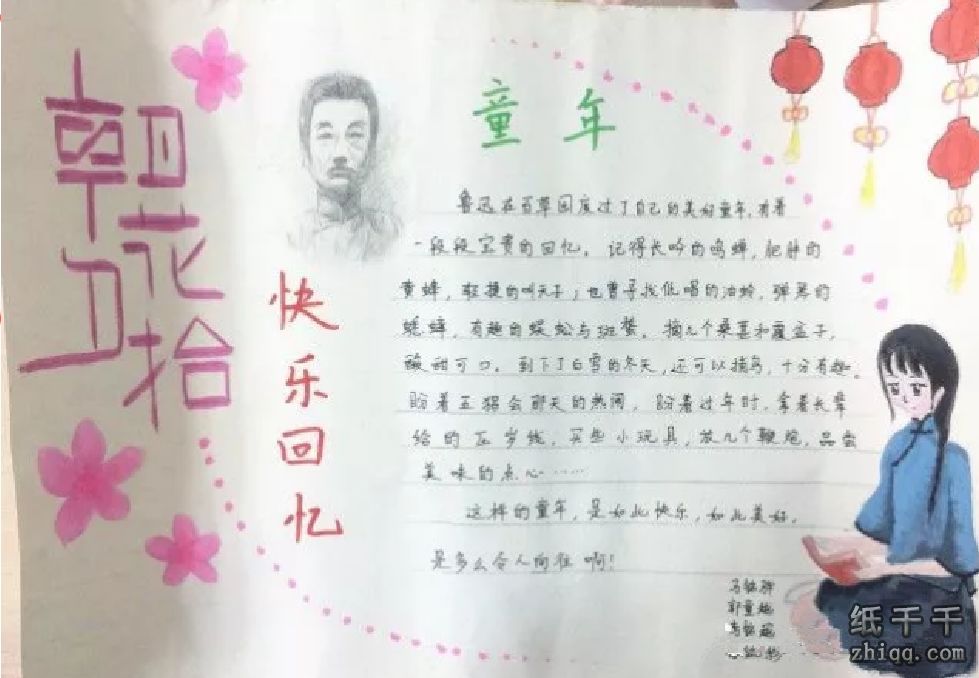 朝花夕拾
童年
快乐回忆
鲁迅在百草园度过了自己的美好童年,有着
一段段宝贵的回忆。记得长吟的鸣蝉,肥胖的
黄蜂,轻捷的叫天子;也曾寻找低唱的油蛉,弹琴的
蟋蟀,有趣的蜈蚣与斑蝥。摘几个桑葚和覆盆子,
酸甜可口。到下了白雪的冬天,还可以捕鸟,十分有趣。
盼着五猖会那天的热闹,盼着过年时,拿着长辈
给的压岁钱,买些小玩具,放几个鞭炮,品尝
美味的点心……
这样的童年,是如此快乐,如此美好,
是多么令人向往啊!
纸千千
zhiqq.com